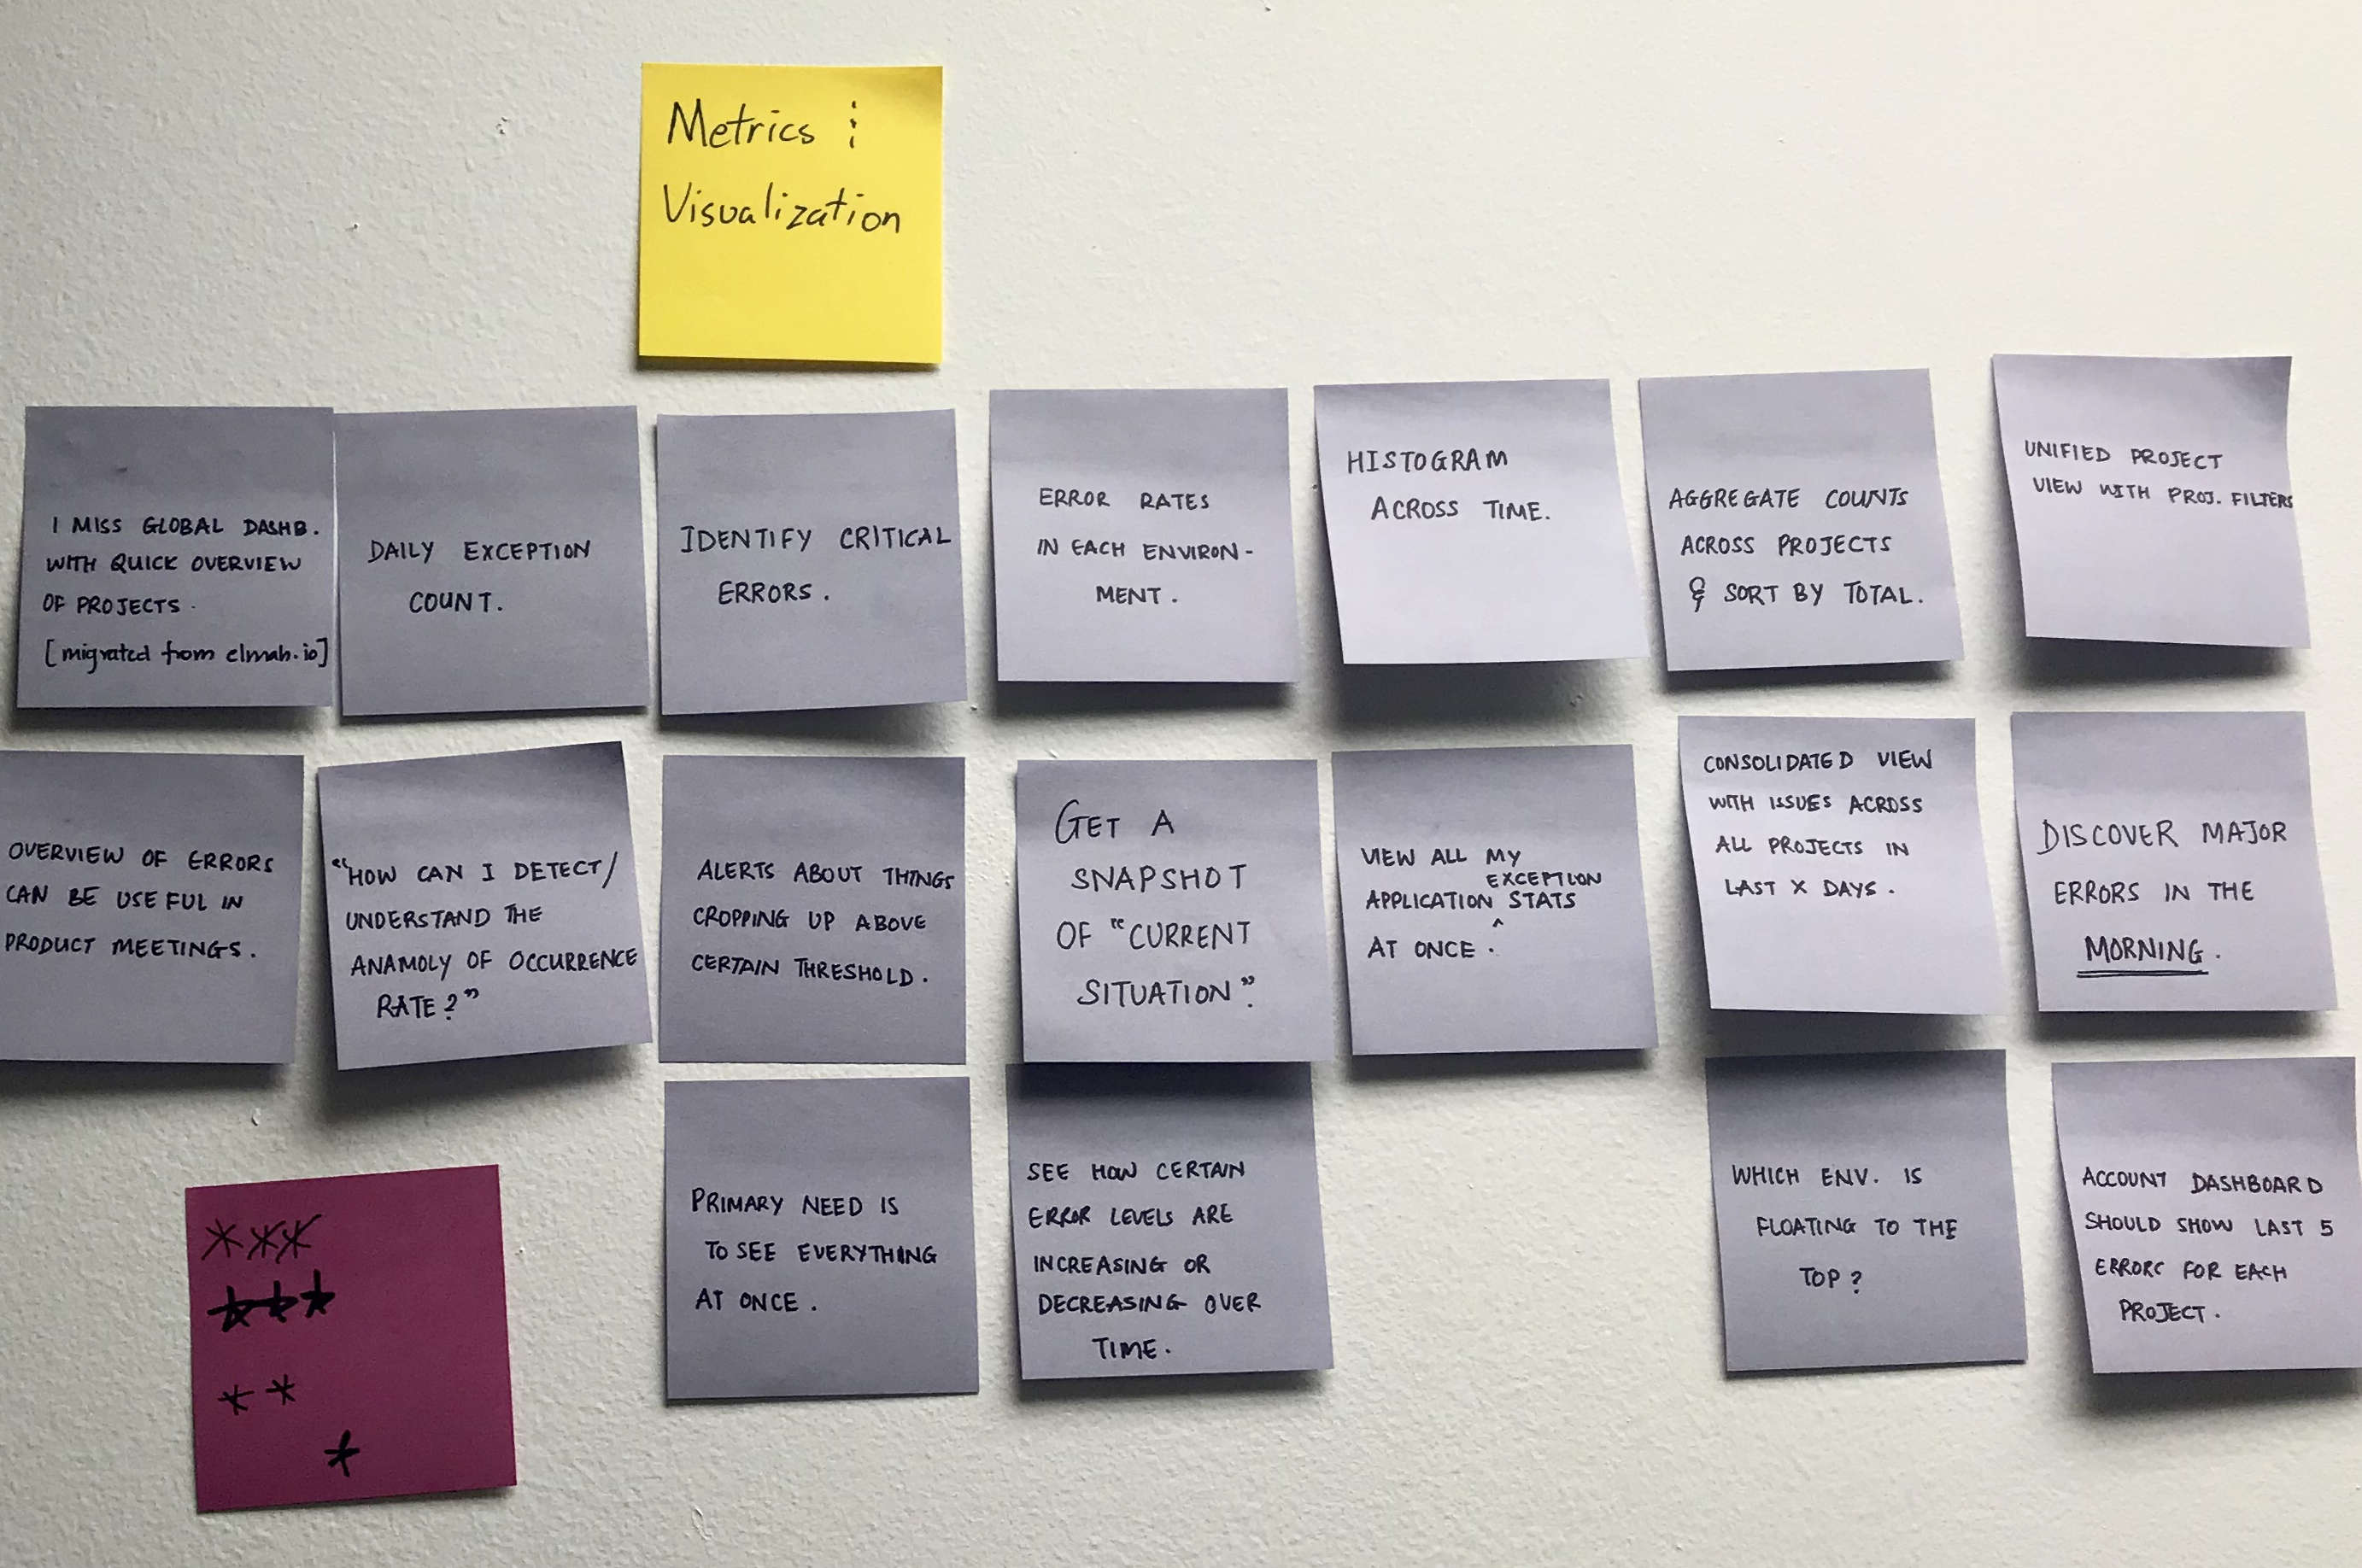 Metrics &
Visualization
I MISS GLOBAL DASHB.
WITH QUICK OVERVIEW
OF PROJECTS.
[migrated from elmah.io]
DAILY EXCEPTION
COUNT.
IDENTIFY CRITICAL
ERRORS.
ERROR RATES
IN EACH ENVIRON-
MENT.
HISTOGRAM
ACROSS TIME.
AGGREGATE COUNTS
ACROSS PROJECTS
& SORT BY TOTAL.
UNIFIED PROJECT
VIEW WITH PROJ. FILTERS
OVERVIEW OF ERRORS
CAN BE USEFUL IN
PRODUCT MEETINGS.
"HOW CAN I DETECT/
UNDERSTAND THE
ANAMOLY OF OCCURRENCE
RATE?"
ALERTS ABOUT THINGS
CROPPING UP ABOVE
CERTAIN THRESHOLD.
GET A
SNAPSHOT
OF "CURRENT
SITUATION".
VIEW ALL MY
APPLICATION EXCEPTION STATS
AT ONCE.
CONSOLIDATED VIEW
WITH ISSUES ACROSS
ALL PROJECTS IN
LAST X DAYS.
DISCOVER MAJOR
ERRORS IN THE
MORNING.
PRIMARY NEED IS
TO SEE EVERYTHING
AT ONCE.
SEE HOW CERTAIN
ERROR LEVELS ARE
INCREASING OR
DECREASING OVER
TIME.
WHICH ENV. IS
FLOATING TO THE
TOP?
ACCOUNT DASHBOARD
SHOULD SHOW LAST 5
ERRORS FOR EACH
PROJECT.
***
***
**
*